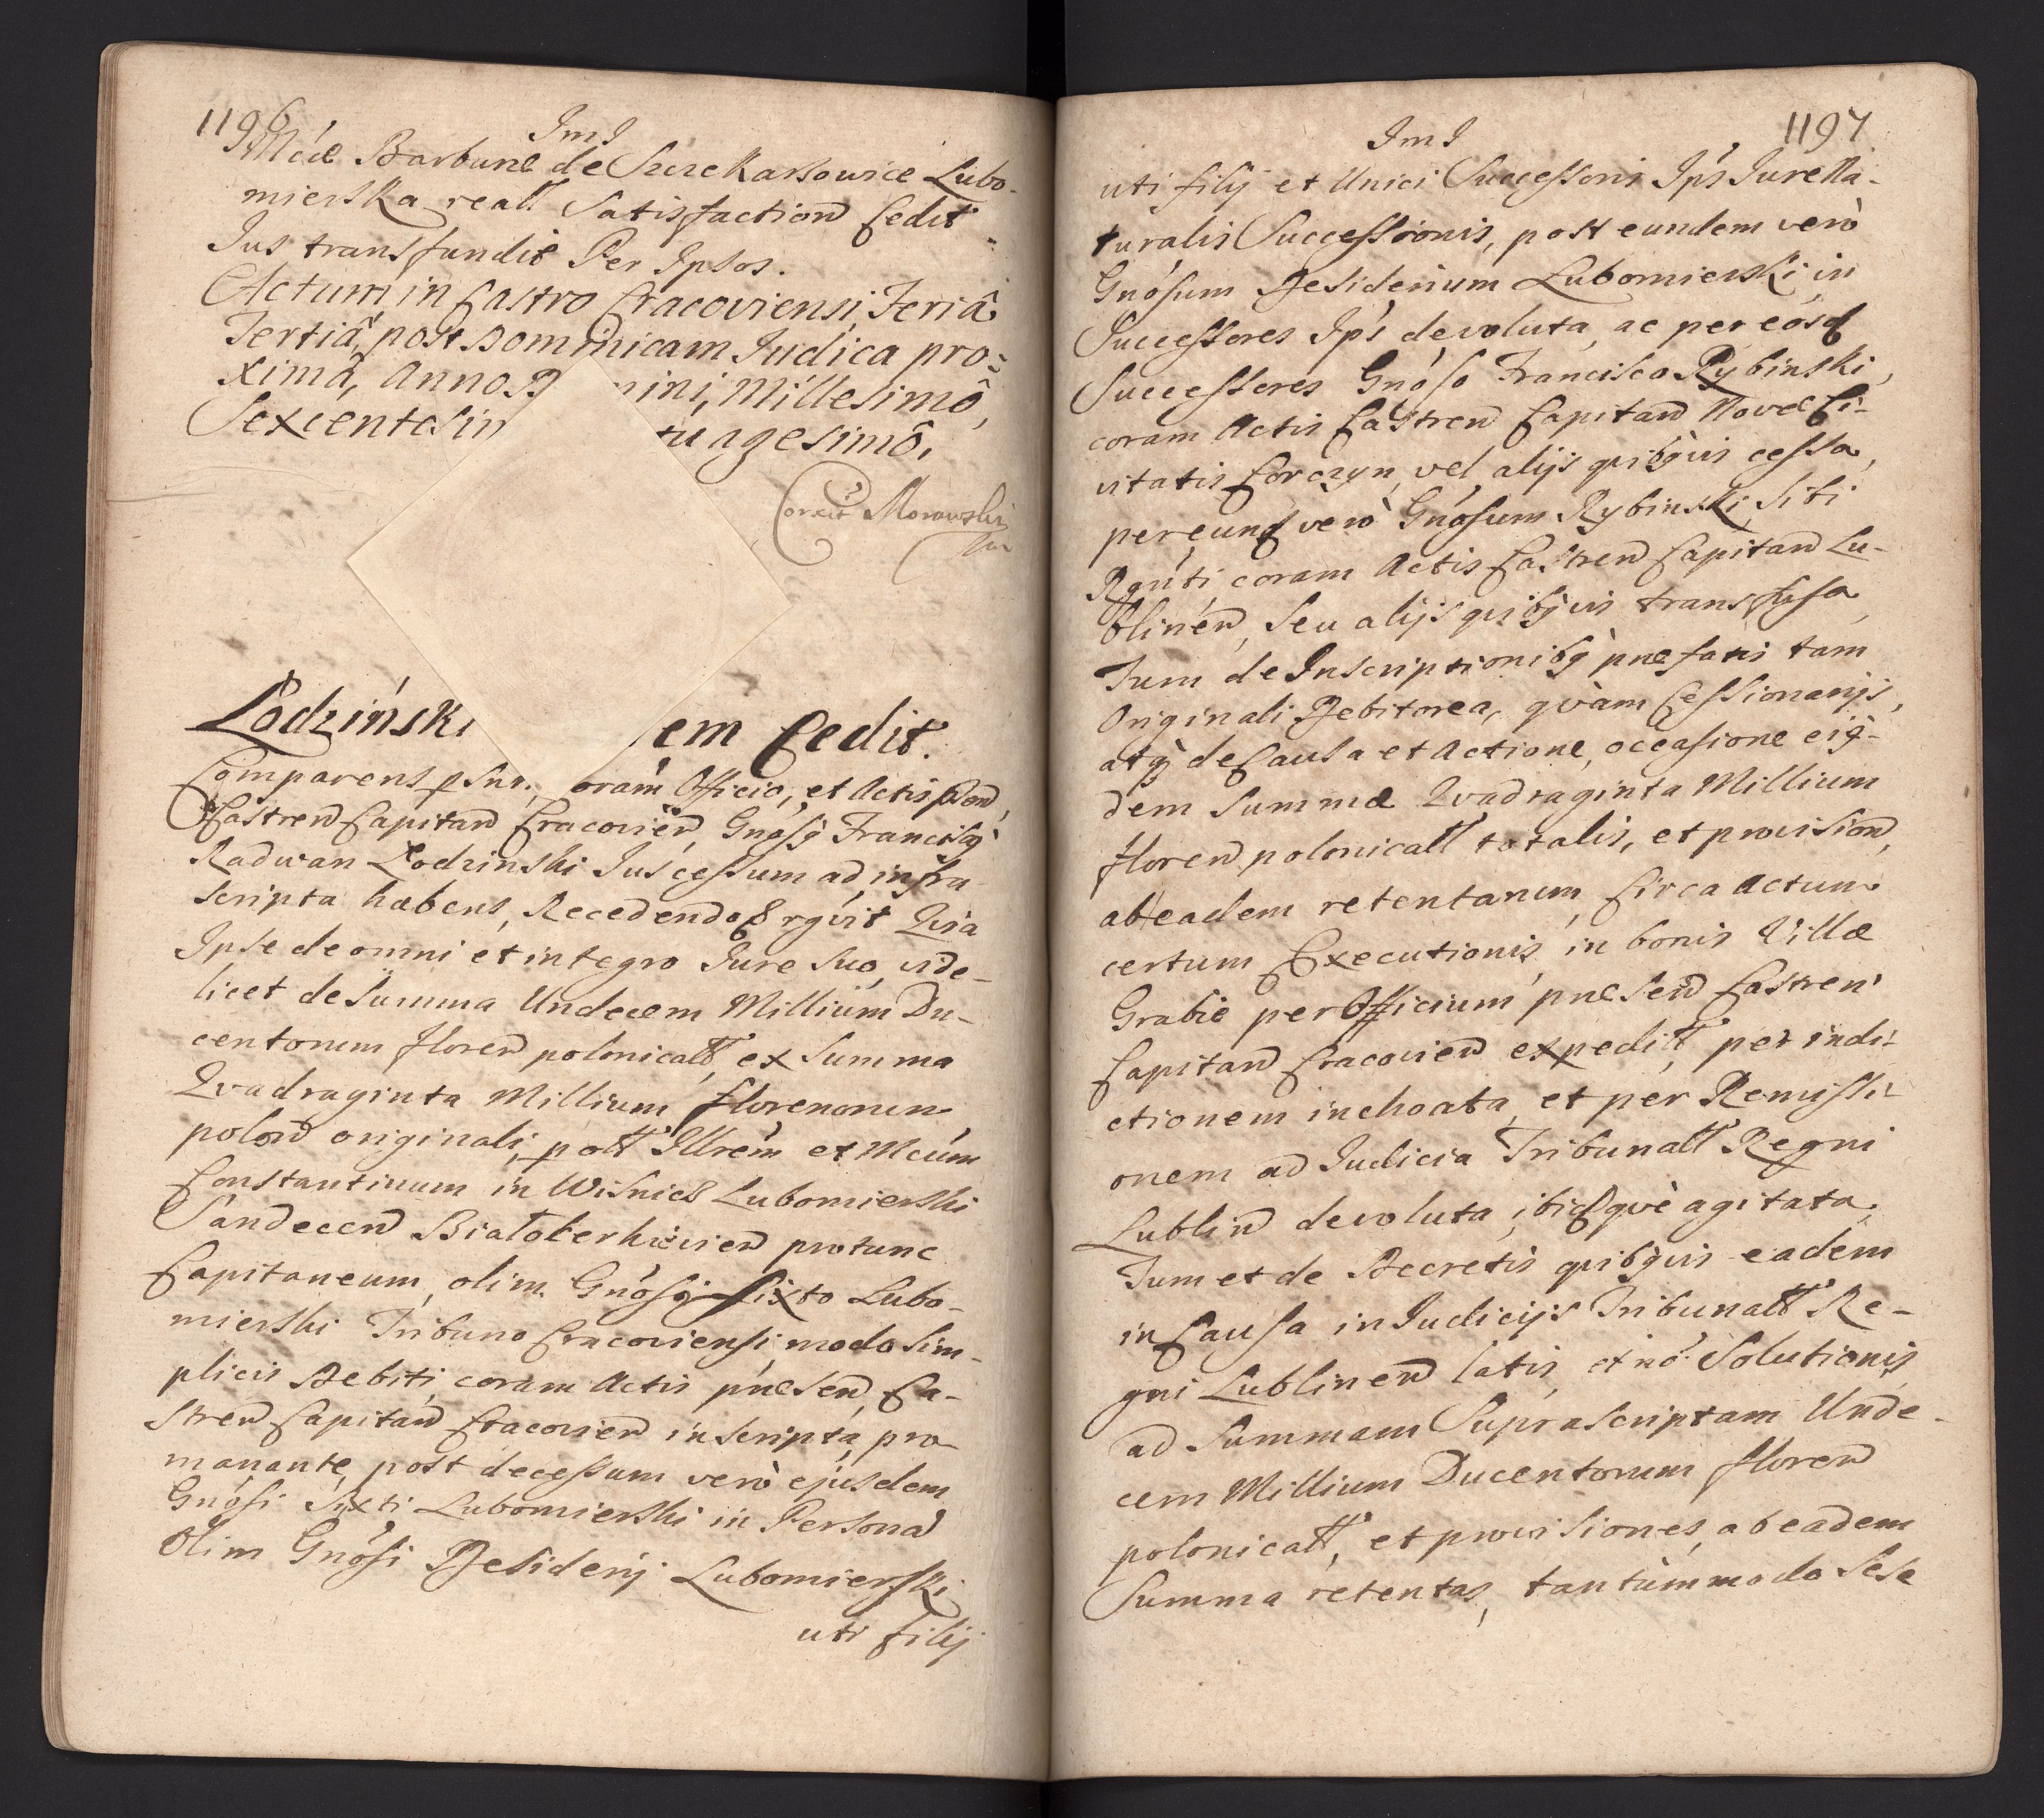 1196
Im I
Mcae Barbarae de Szczekarzowice Lubo-
mierska reall Satisfaction Cedit
Jus transfundit Per Ipsos.
Actum in Castro Cracoviensi, Feriâ
Tertiâ, post Dominicam Judica pro-
ximâ, Anno D mini, Millesimô,
Sexcentesim tuagesimô.
Corexit Morawski
Lodzinski em Cedit.
Comparens psnr. oram Officio, et Actis psen,
Castren Capitan Cracovien, Gnósq Franciscq
Radwan Lodzinski Jus cessum ad infra
scripta habens, Recedendo Ergvit Qvia
Ipse de omni et integro Jure suo, vide-
licet de Summa Undecem Millium Du-
centorum floren polonicall, ex Summa
Qvadraginta Millium florenorum
polon originali, p olt Illrem et Mcum
Constantinum in Wisnicz Lubomierski
Sandecen Bialocerkievien protunc
Capitaneum, olim Gnóso Sixto Lubo-
mierski Tribuno Cracoviensi modo sim-
plicis Debiti, coram Actis praesen, Ca-
stren Capitan Cracovien inscripta, pro-
manante, post decessum verò ejusdem
Gnósi Sixti Lubomierski in Persona
Olim Gnósi Desiderij Lubomierski
uti filij
1197
Im I
uti filij et Unici Successoris Ipsˢ Jure Na-
turalis Successionis, post eundem verò
Gnósum Desiderium Lubomierski, in
Successores Ipsˢ devoluta, ac per eosd
Successores Gnóso Francisco Rybinski,
coram Actis Castren Capitan Novae Ci-
vitatis Corczyn, vel alijs qvibqvis cessa,
per eund verò Gnósum Rybinski, sibi
Rgnti, coram Actis Castren Capitan Lu-
blinen, seu alijs qvibqvis transfusa,
Tum de Inscriptionibq praefatis tam
Originali Debitorea, qvàm Cessionarijs,
atq de Causa et Actione, occasione eig-
dem Summae Qvadraginta Millium
floren polonicall totalis, et provision,
ab eadem retentarum, Circa Actum
certum Executionis, in bonis Villae
Grabie per Officium praesen Castren
Capitan Cracovien expedill, per indi-
ctionem inchoata, et per Remissi-
onem ad Judicia Tribunall Regni
Lublin devoluta, ibidqve agitata,
Tum et de Decretis qvibqvis eadem
in Causa in Judicijs Tribunall Re-
gni Lublinen latis, et nó. Solutionis
ad Summam Suprascriptam Unde-
cem Millium Ducentorum floren
polonicall, et provisiones, ab eadem
Summa retentas, tantùmmodo sese